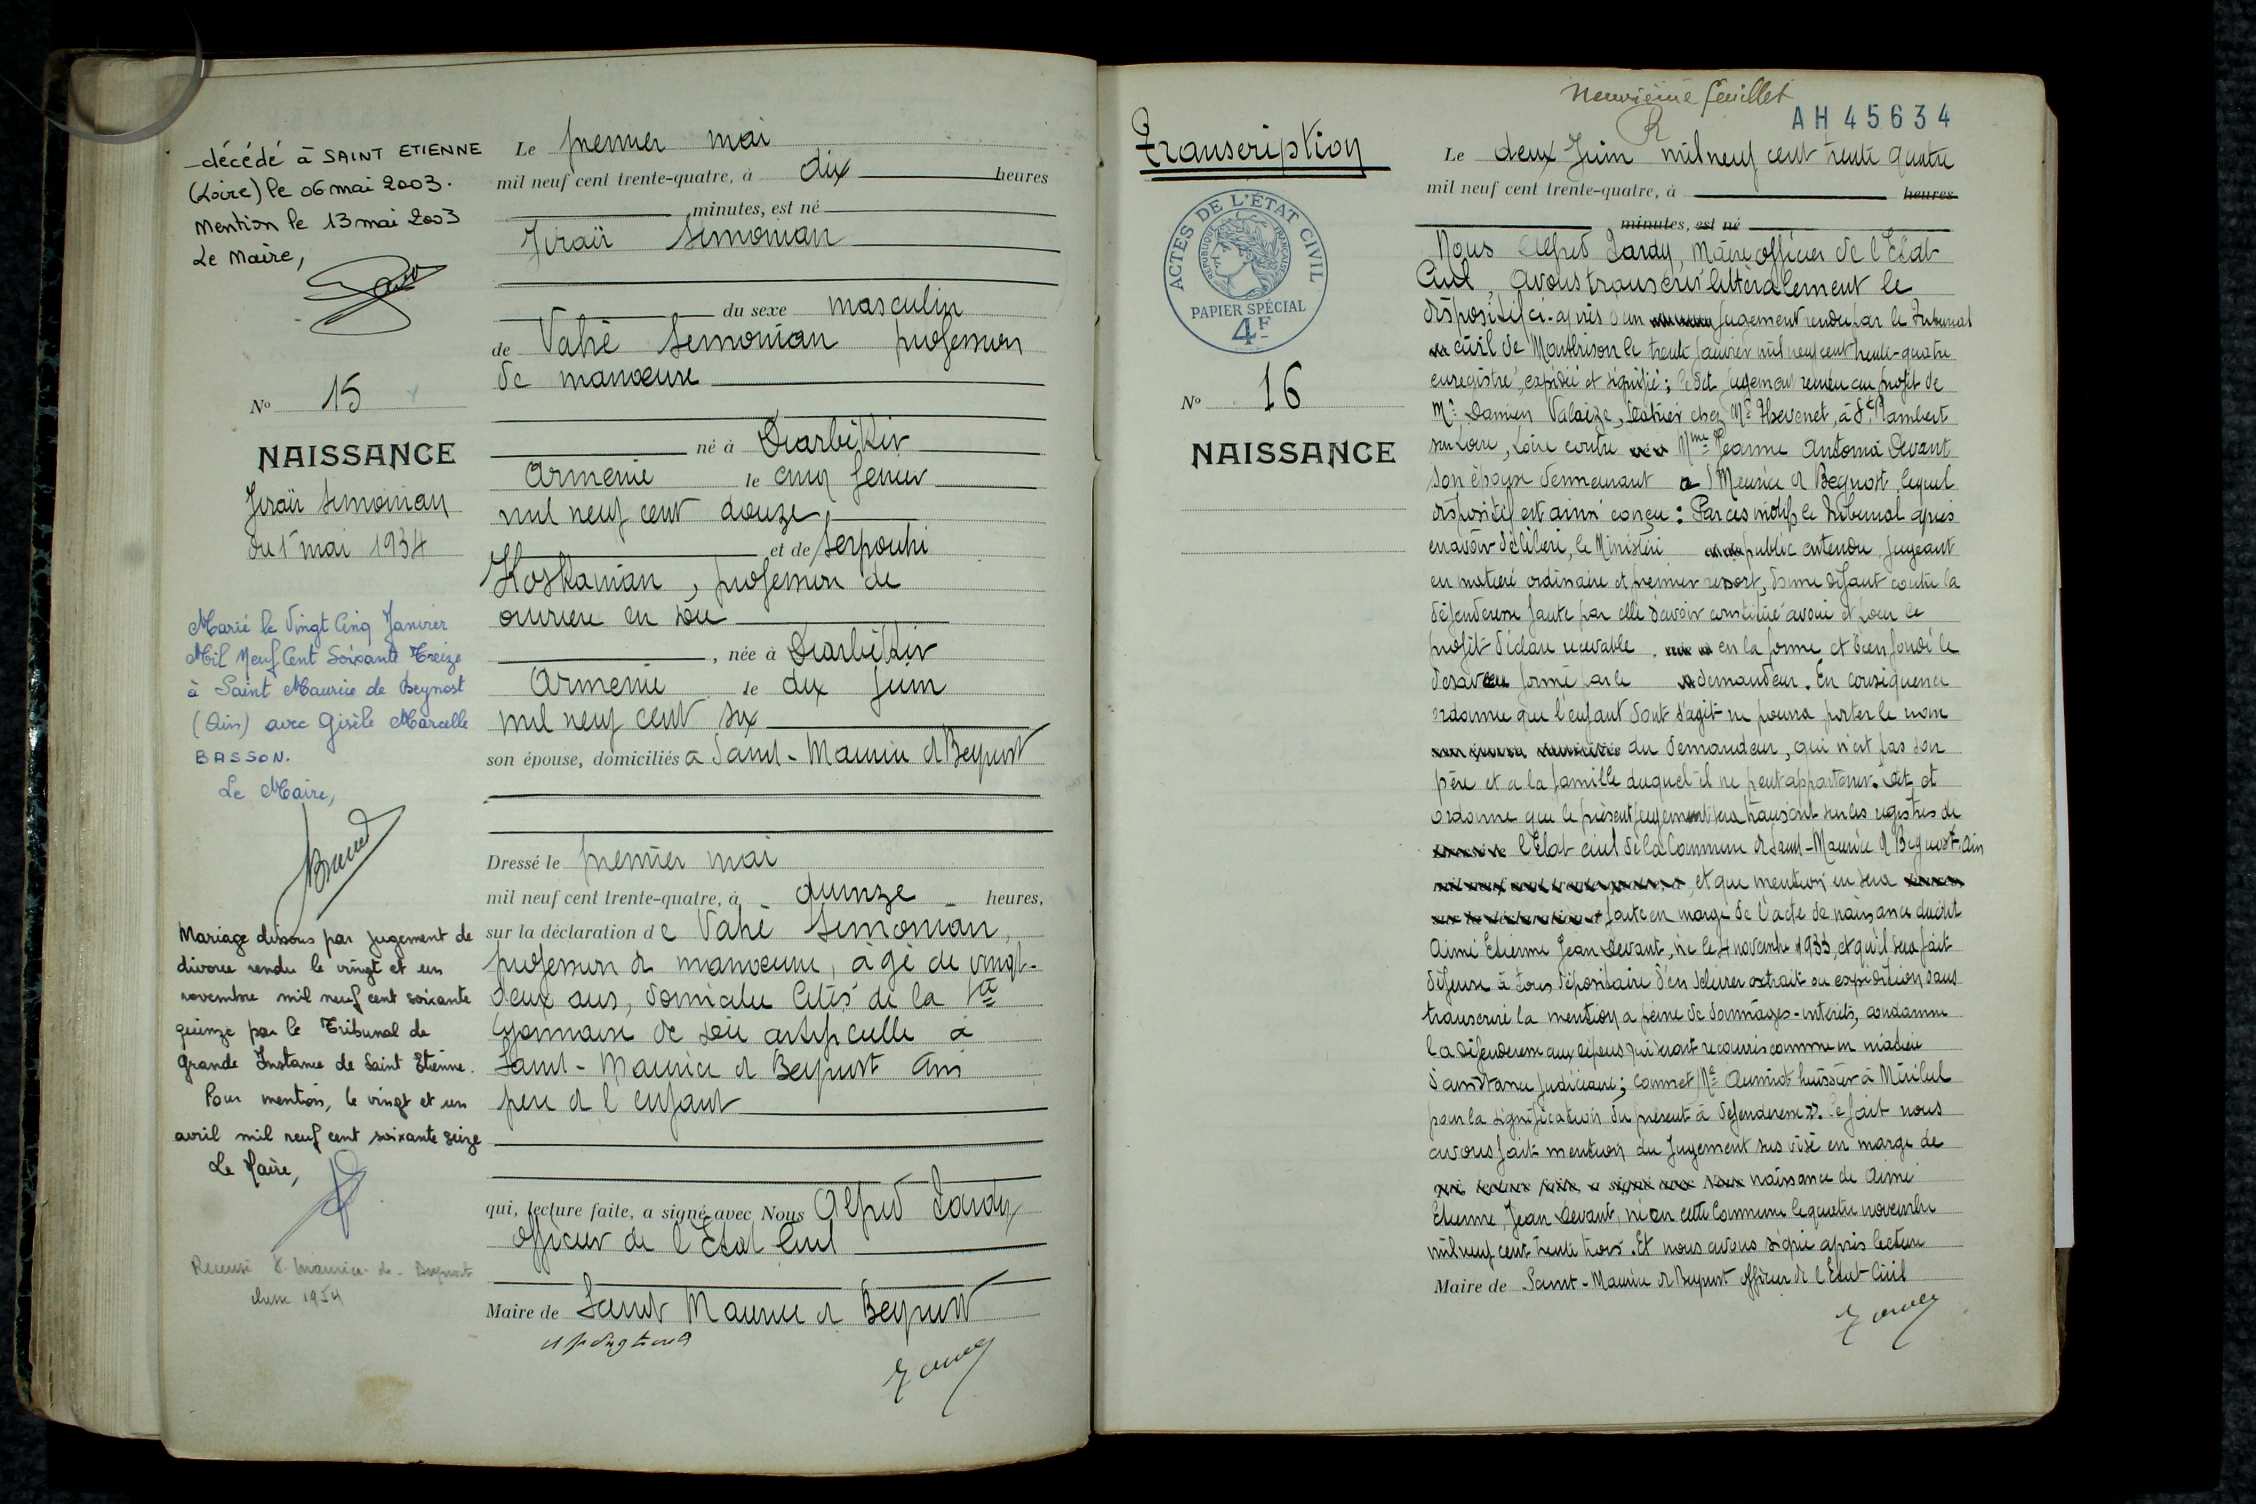 décédé à SAINT ETIENNE
(Loire) le 06 mai 2003.
Mention le 13 mai 2003
Le Maire,
Nº 15
NAISSANCE
Jiraïr Simonian
du 1er mai 1934
Marié le Vingt Cinq Janvier
Mil Neuf Cent Soixante Treize
à Saint Maurice de Beynost
(Ain) avec Gisèle Marcelle
BASSON.
Le Maire,
Mariage dissous par jugement de
divorce rendu le vingt et un
novembre mil neuf cent soixante
quinze par le Tribunal de
Grande Instance de Saint Etienne.
Pour mention, le vingt et un
avril mil neuf cent soixante seize
Le Maire,
Recensé St Maurice-de-Beynost
classe 1954
Le premier mai
mil neuf cent trente-quatre, à dix heures
minutes, est né
Jiraïr Simonian
du sexe masculin
de Vahé Simonian profession
de manœuvre
né à Diarbékir
Arménie le cinq février
mil neuf cent douze
et de Serpouhi
Kostanian, profession de
ouvrière en soie
, née à Diarbékir
Arménie le dix juin
mil neuf cent six
son épouse, domiciliés à Saint-Maurice d Beynost
Dressé le premier mai
mil neuf cent trente-quatre, à quinze heures,
sur la déclaration de Vahé Simonian,
profession d manœuvre, âgé de vingt-
deux ans, domicilié Cités de la Sté
Lyonnaise de soie artificielle à
Saint-Maurice d Beynost Ain
père d l enfant
qui, lecture faite, a signé avec Nous Alfred Dardy
Officier de l'Etat Civil
Maire de Saint Maurice d Beynost
Transcription
ACTES DE L'ÉTAT CIVIL
RÉPUBLIQUE FRANÇAISE
PAPIER SPÉCIAL
4F
Nº 16
NAISSANCE
Neuvième feuillet
AH 45634
Le deux Juin mil neuf cent trente quatre
mil neuf cent trente-quatre, à heures
minutes, est né
Nous Alfred Dardy, Maire officier de l'Etat
Civil, avons transcris littéralement le
dispositif ci-après d'un jugement rendu par le Tribunal
civil de Montbrison le trente Janvier mil neuf cent trente-quatre
enregistré, expédié et signifié; le dit jugement rendu au profit de
Mr Damien Valaize, chez Mr Thevenet, à St Rambert
sur Loire, Loire contre Mme Jeanne Antonia Devant
son épouse demeurant a St Maurice d Beynost, lequel
dispositif est ainsi conçu: Par ces motifs le Tribunal après
en avoir délibéré, le Ministère public entendu, jugeant
en matière ordinaire et premier ressort, donne défaut contre la
défenderesse faute par elle d'avoir constitué avoué et pour le
profit déclare recevable en la forme et bien fondé le
désaveu formé par le demandeur. En conséquence
ordonne que l'enfant dont s'agit ne pourra porter le nom
du demandeur, qui n'est pas son
père et a la famille duquel il ne peut appartenir. Dit et
ordonne que le présent jugement sera transcrit sur les registres de
l'Etat civil de la Commune d Saint-Maurice d Beynost, Ain
et que mention en sera
faite en marge de l'acte de naissance dudit
Aimé Etienne Jean Devant, né le 4 novembre 1933, et qu'il sera fait
défense à tous dépositaire d'en délivrer extrait ou expédition sans
transcrire la mention a peine de dommages-intérêts, condamne
la défenderesse aux dépens qui seront recouvrés comme en matière
d'assistance judiciaire; commet Me huissier à Miribel
pour la signification du présent à défenderesse ». Ce fait nous
avons fait mention du jugement sus visé en marge de
naissance de Aimé
Etienne, Jean Devant, né en cette Commune le quatre novembre
mil neuf cent trente trois. Et nous avons signé après lecture
Maire de Saint-Maurice d Beynost officier de l'Etat Civil